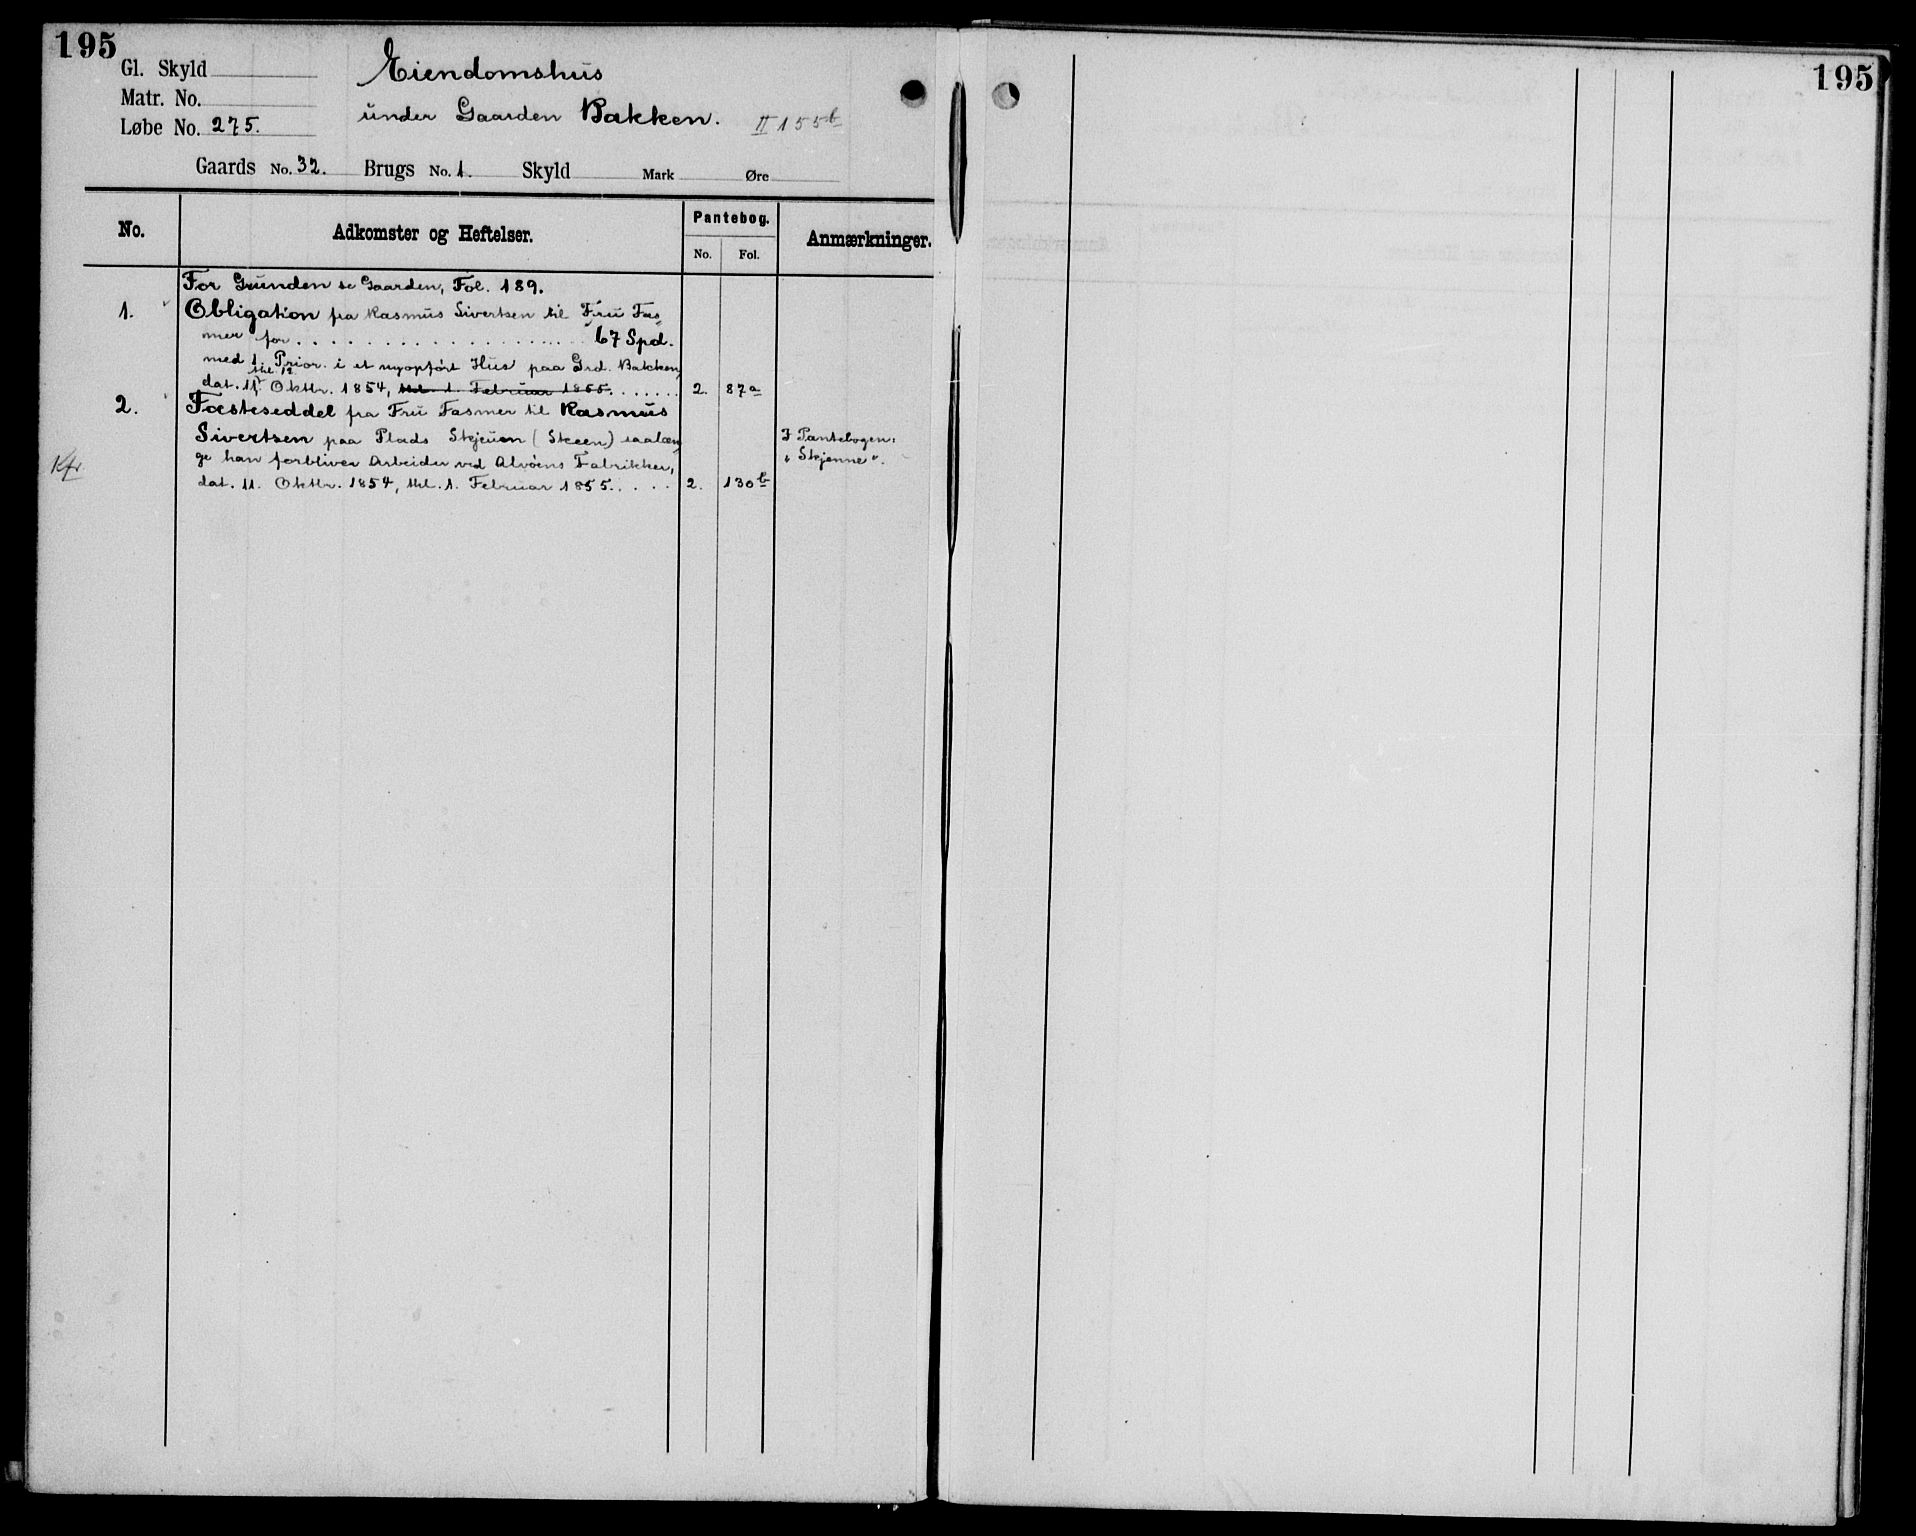 195
Gl. Skyld
Matr. No.
Løbe No. 275.
Eiendomshus
under Gaarden Bakken. II 155b
Gaards No. 32. Brugs No. 1. Skyld Mark Øre
No. Adkomster og Heftelser. Pantebog. Anmærkninger.
No. Fol.
For Grunden se Gaarden, Fol. 189.
1. Obligation fra Rasmus Sivertsen til Fru Fas„
mer for . . . . . . . . . . . . . . . . . . 67 Spd.
med 1. Prior. i et nyopført Hus paa Grd. Bakken,
thl. 12.
dat. 11. Oktbr. 1854, thl. 1. Februar 1855. . . . . . . 2. 87a
2. Fæsteseddel fra Fru Fasmer til Rasmus
Sivertsen paa Plads Skjeuen (Skeen) saalæn„ I Pantebogen:
Kfr ge han forbliver Arbeider ved Alvøens Fabrikker, „Skjenne".
dat. 11. Oktbr. 1854, thl. 1. Februar 1855. . . . . 2. 130b
195